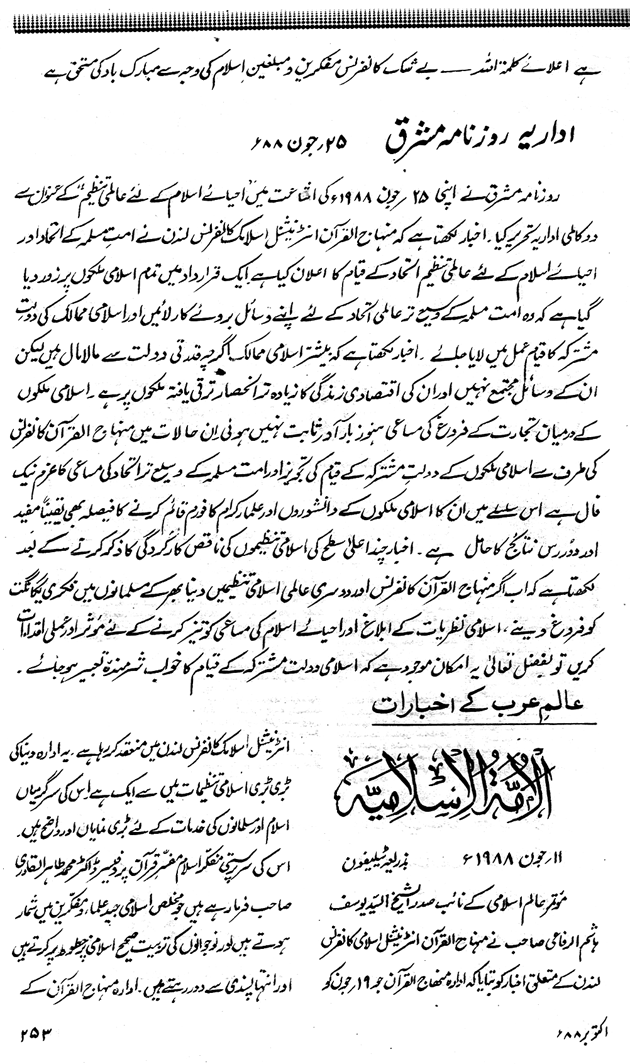 ہے اعلائے کلمۃ اللہ ــــ بے شک کانفرنس مفکرین و مبلغین اسلام کی وجہ سے مبارک باد کی مستحق ہے
اداریہ روزنامہ مشرق ۲۵؍جون ۸۸ء
روزنامہ مشرق نے اپنی ۲۵؍جون ۱۹۸۸ء کی اشاعت میں احیائے اسلام کے لئے عالمی تنظیم" کے عنوان سے
دو کالمی اداریہ تحریر کیا۔ اخبار لکھتا ہے کہ منہاج القرآن انٹرنیشنل اسلامک کانفرنس لندن نے امت مسلمہ کے اتحاد اور
احیائے اسلام کے لئے عالمی تنظیم اتحاد کے قیام کا اعلان کیا ہے ایک قرارداد میں تمام اسلامی ملکوں پر زور دیا
گیا ہے کہ وہ امت مسلمہ کے وسیع تر عالمی اتحاد کے لئے اپنے وسائل بروئے کار لائیں اور اسلامی ممالک کی دولت
مشترکہ کا قیام عمل میں لایا جائے۔ اخبار لکھتا ہے کہ بیشتر اسلامی ممالک اگرچہ قدرتی دولت سے مالا مال ہیں لیکن
ان کے وسائل مجتمع نہیں اور ان کی اقتصادی زندگی کا زیادہ تر انحصار ترقی یافتہ ملکوں پر ہے۔ اسلامی ملکوں
کے درمیان تجارت کے فروغ کی مساعی ہنوز بارآور ثابت نہیں ہوئی ان حالات میں منہاج القرآن کانفرنس
کی طرف سے اسلامی ملکوں کے دولت مشترکہ کے قیام کی تجویز اور امت مسلمہ کے وسیع تر اتحاد کی مساعی کا عزم نیک
فال ہے اس سلسلے میں ان کا اسلامی ملکوں کے دانشوروں اور علماء کرام کا فورم قائم کرنے کا فیصلہ بھی یقیناً مفید
اور دوررس نتائج کا حامل ہے۔ اخبار چند اعلیٰ سطح کی اسلامی تنظیموں کی ناقص کارکردگی کا ذکر کرنے کے بعد
لکھتا ہے کہ اب اگر منہاج القرآن کانفرنس اور دوسری عالمی اسلامی تنظیمیں دنیا بھر کے مسلمانوں میں فکری یگانگت
کو فروغ دینے، اسلامی نظریات کے ابلاغ اور احیائے اسلام کی مساعی کو تیز کرنے کے لئے مؤثر اور عملی اقدامات
کریں تو بفضل تعالیٰ یہ امکان موجود ہے کہ اسلامی دولت مشترکہ کے قیام کا خواب شرمندہ تعبیر ہو جائے۔
عالم عرب کے اخبارات
الأمة الإسلامية
۱۱؍جون ۱۹۸۸ء بذریعہ ٹیلیفون
مؤتمر عالم اسلامی کے نائب صدر الشیخ السید یوسف
ہاشم الرفاعی صاحب نے منہاج القرآن انٹرنیشنل اسلامی کانفرنس
لندن کے متعلق اخبار کو بتایا کہ ادارہ منھاج القرآن جو ۱۹؍جون کو
انٹرنیشنل اسلامک کانفرنس لندن میں منعقد کر رہا ہے۔ یہ ادارہ دنیا کی
بڑی بڑی اسلامی تنظیمات میں سے ایک ہے اس کی سرگرمیاں
اسلام اور مسلمانوں کی خدمات کے لئے بڑی نمایاں اور واضح ہیں۔
اس کی سرپرستی مفکر اسلام مفسر قرآن پروفیسر ڈاکٹر محمد طاہر القادری
صاحب فرما رہے ہیں جو مخلص اسلامی جید علماء و مفکرین میں شمار
ہوتے ہیں اور نوجوانوں کی تربیت صحیح اسلامی خطوط پر کرتے ہیں
اور انتہا پسندی سے دور رہتے ہیں۔ ادارہ منہاج القرآن کے
اکتوبر ۸۸ء
۲۵۳